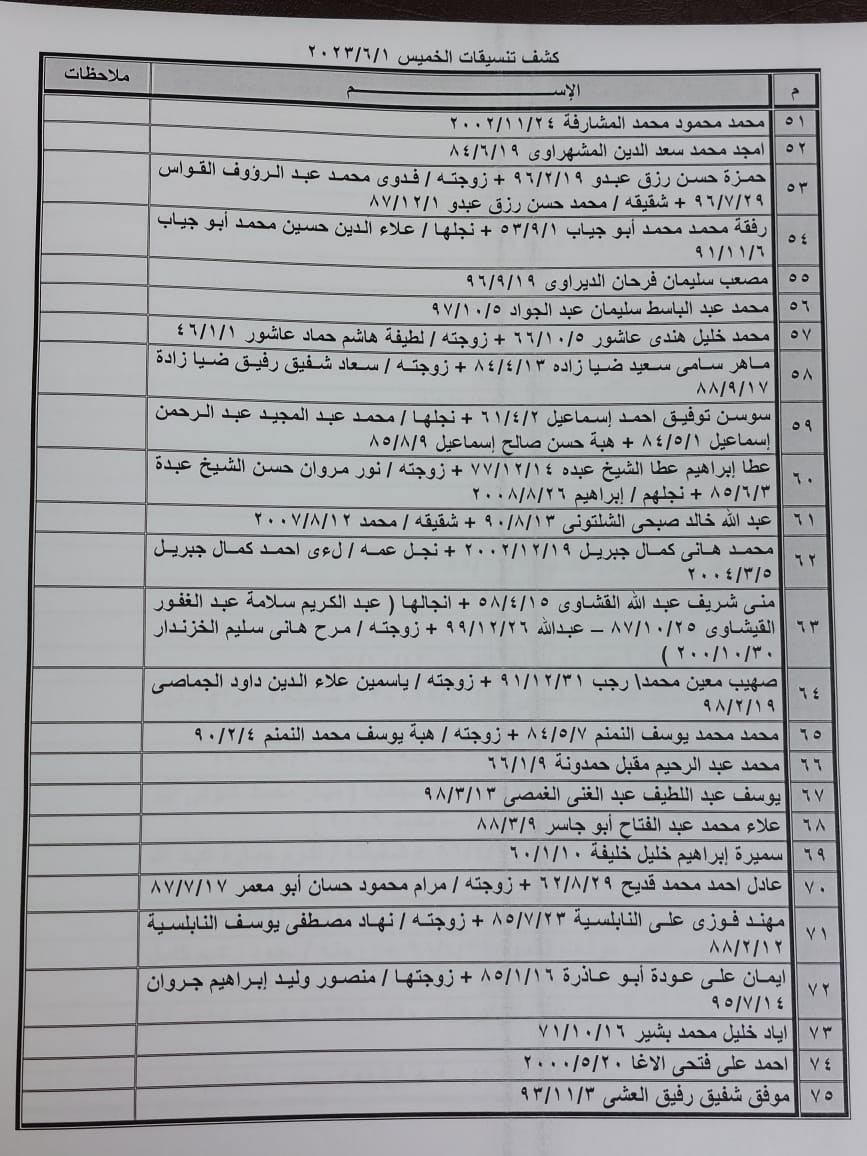 كشف تنسيقات الخميس ٢٠٢٣/٦/١
م الإســـــــم ملاحظات
٥١ محمد محمود محمد المشارفة ٢٠٠٢/١١/٢٤
٥٢ امجد محمد سعد الدين المشهراوى ٨٤/٦/١٩
٥٣ حمزة حسن رزق عبدو ٩٦/٢/١٩ + زوجته / فدوى محمد عبد الرؤوف القواس
٩٦/٧/٢٩ + شقيقه / محمد حسن رزق عبدو ٨٧/١٢/١
٥٤ رفقة محمد محمد أبو جياب ٥٣/٩/١ + نجلها / علاء الدين حسين محمد أبو جياب
٩١/١١/٦
٥٥ مصعب سليمان فرحان الديراوى ٩٦/٩/١٩
٥٦ محمد عبد الباسط سليمان عبد الجواد ٩٧/١٠/٥
٥٧ محمد خليل هندى عاشور ٦٦/١٠/٥ + زوجته / لطيفة هاشم حماد عاشور ٤٦/١/١
٥٨ ماهر سامى سعيد ضيا زاده ٨٤/٤/١٣ + زوجته / سعاد شفيق رفيق ضيا زادة
٨٨/٩/١٧
٥٩ سوسن توفيق احمد إسماعيل ٦١/٤/٢ + نجلها / محمد عبد المجيد عبد الرحمن
إسماعيل ٨٤/٥/١ + هبة حسن صالح إسماعيل ٨٥/٨/٩
٦٠ عطا إبراهيم عطا الشيخ عبده ٧٧/١٢/١٤ + زوجته / نور مروان حسن الشيخ عبدة
٨٥/٦/٣ + نجلهم / إبراهيم ٢٠٠٨/٨/٢٦
٦١ عبد الله خالد صبحى الشلتونى ٩٠/٨/١٣ + شقيقه / محمد ٢٠٠٧/٨/١٢
٦٢ محمد هانى كمال جبريل ٢٠٠٢/١٢/١٩ + نجل عمه / لءى احمد كمال جبريل
٢٠٠٤/٣/٥
٦٣ منى شريف عبد الله القشاوى ٥٨/٤/١٥ + انجالها ( عبد الكريم سلامة عبد الغفور
القيشاوى ٨٧/١٠/٢٥ – عبدالله ٩٩/١٢/٢٦ + زوجته / مرح هانى سليم الخزندار
٢٠٠/١٠/٣٠ )
٦٤ صهيب معين محمد\ رجب ٩١/١٢/٣١ + زوجته / ياسمين علاء الدين داود الجماصى
٩٨/٢/١٩
٦٥ محمد محمد يوسف النمنم ٨٤/٥/٧ + زوجته / هبة يوسف محمد النمنم ٩٠/٢/٤
٦٦ محمد عبد الرحيم مقبل حمدونة ٦٦/١/٩
٦٧ يوسف عبد اللطيف عبد الغنى الغمصى ٩٨/٣/١٣
٦٨ علاء محمد عبد الفتاح أبو جاسر ٨٨/٣/٩
٦٩ سميرة إبراهيم خليل خليفة ٦٠/١/١٠
٧٠ عادل احمد محمد قديح ٦٢/٨/٢٩ + زوجته / مرام محمود حسان أبو معمر ٨٧/٧/١٧
٧١ مهند فوزى على النابلسية ٨٥/٧/٢٣ + زوجته / نهاد مصطفى يوسف النابلسية
٨٨/٢/١٢
٧٢ ايمان على عودة أبو عاذرة ٨٥/١/١٦ + زوجتها / منصور وليد إبراهيم جروان
٩٥/٧/١٤
٧٣ اياد خليل محمد بشير ٧١/١٠/١٦
٧٤ احمد على فتحى الاغا ٢٠٠٠/٥/٢٠
٧٥ موفق شفيق رفيق العشى ٩٣/١١/٣